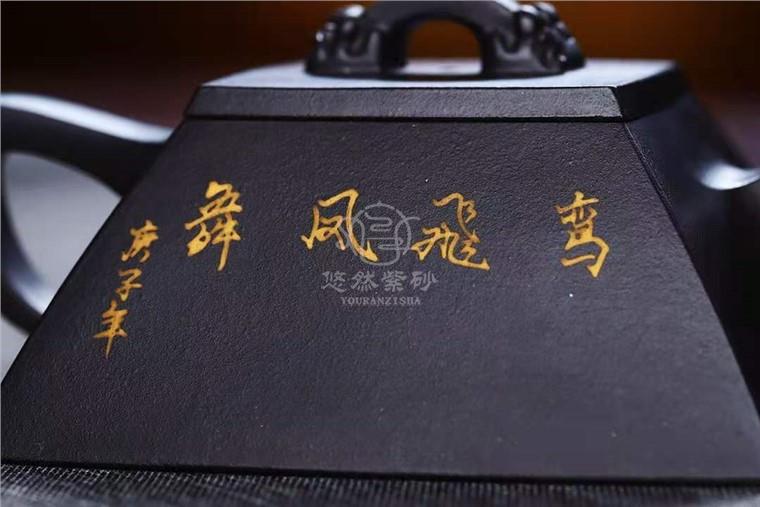 鸾飛凤舞
庚子年
悠然紫砂
YOURANZISHA